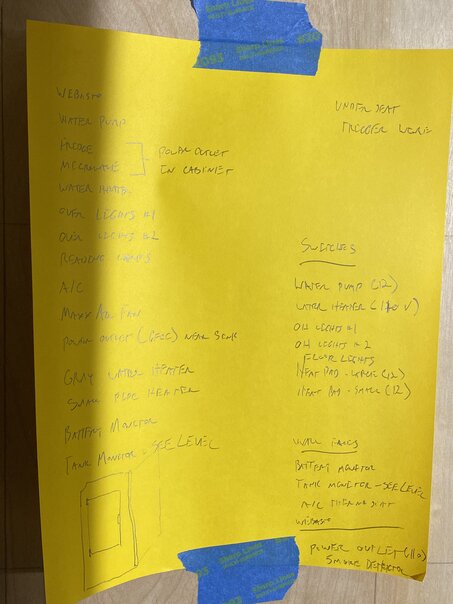 WEBASTO
WATER PUMP
FRIDGE
MICROWAVE
POWER OUTLET
IN CABINET
WATER HEATER
OVER LIGHTS #1
OVER LIGHTS #2
READING LAMPS
A/C
MAXX AIR FAN
POWER OUTLET (GFCI) NEAR SINK
GRAY WATER HEATER
SMALL PIPE HEATER
BATTERY MONITOR
TANK MONITOR - SEE LEVEL
UNDER SEAT
TRIGGER WIRE
SWITCHES
WATER PUMP (12)
WATER HEATER (110 V)
OH LIGHTS #1
OH LIGHTS #2
FLOOR LIGHTS
HEAT PAD - LARGE (12)
HEAT PAD - SMALL (12)
WALL
BATTERY MONITOR
TANK MONITOR - SEE LEVEL
A/C THERMOSTAT
WEBASTO
POWER OUTLET (110)
SMOKE DETECTOR